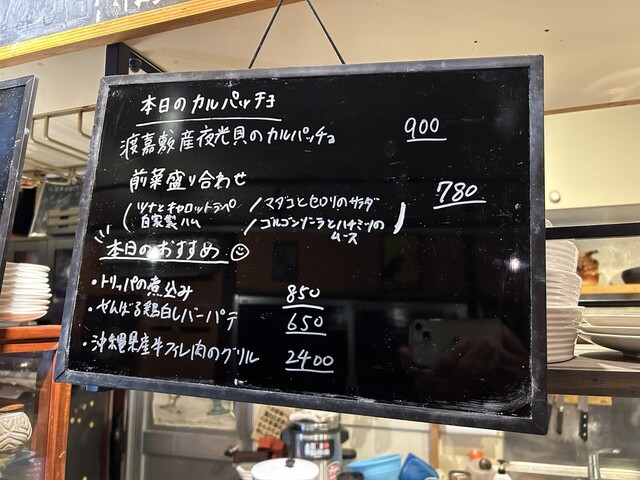 本日のカルパッチョ
渡嘉敷産夜光貝のカルパッチョ 900
前菜盛り合わせ 780
(ツナとキャロットラペ / マダコとセロリのサラダ
自家製ハム / ゴルゴンゾーラとハチミツの
ムース)
本日のおすすめ
・トリッパの煮込み 850
・やんばる鶏白レバーパテ 650
・沖縄県産牛フィレ肉のグリル 2400